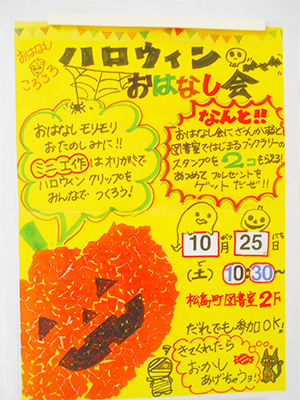 おはなし
ころころ
ハロウィン
おはなし会
おはなしモリモリ
おたのしみに!!
ミニ工作はオリガミで
ハロウィンクリップを
みんなでつくろう!
なんと!!
おはなし会にさんか すると
図書室ではじまるブックラリーの
スタンプを2コもらえる!
あつめてプレゼントを
ゲットだぜ!!
10がつ25にち
ど
(土) 10:30~
松島町図書室2F
だれでも参加OK!
きてくれたら
おかし
あげちゃうヨ!